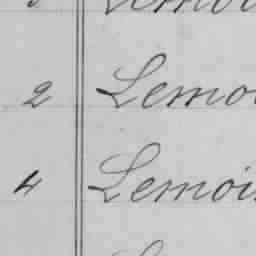 2 Lemoi
4 Lemoi